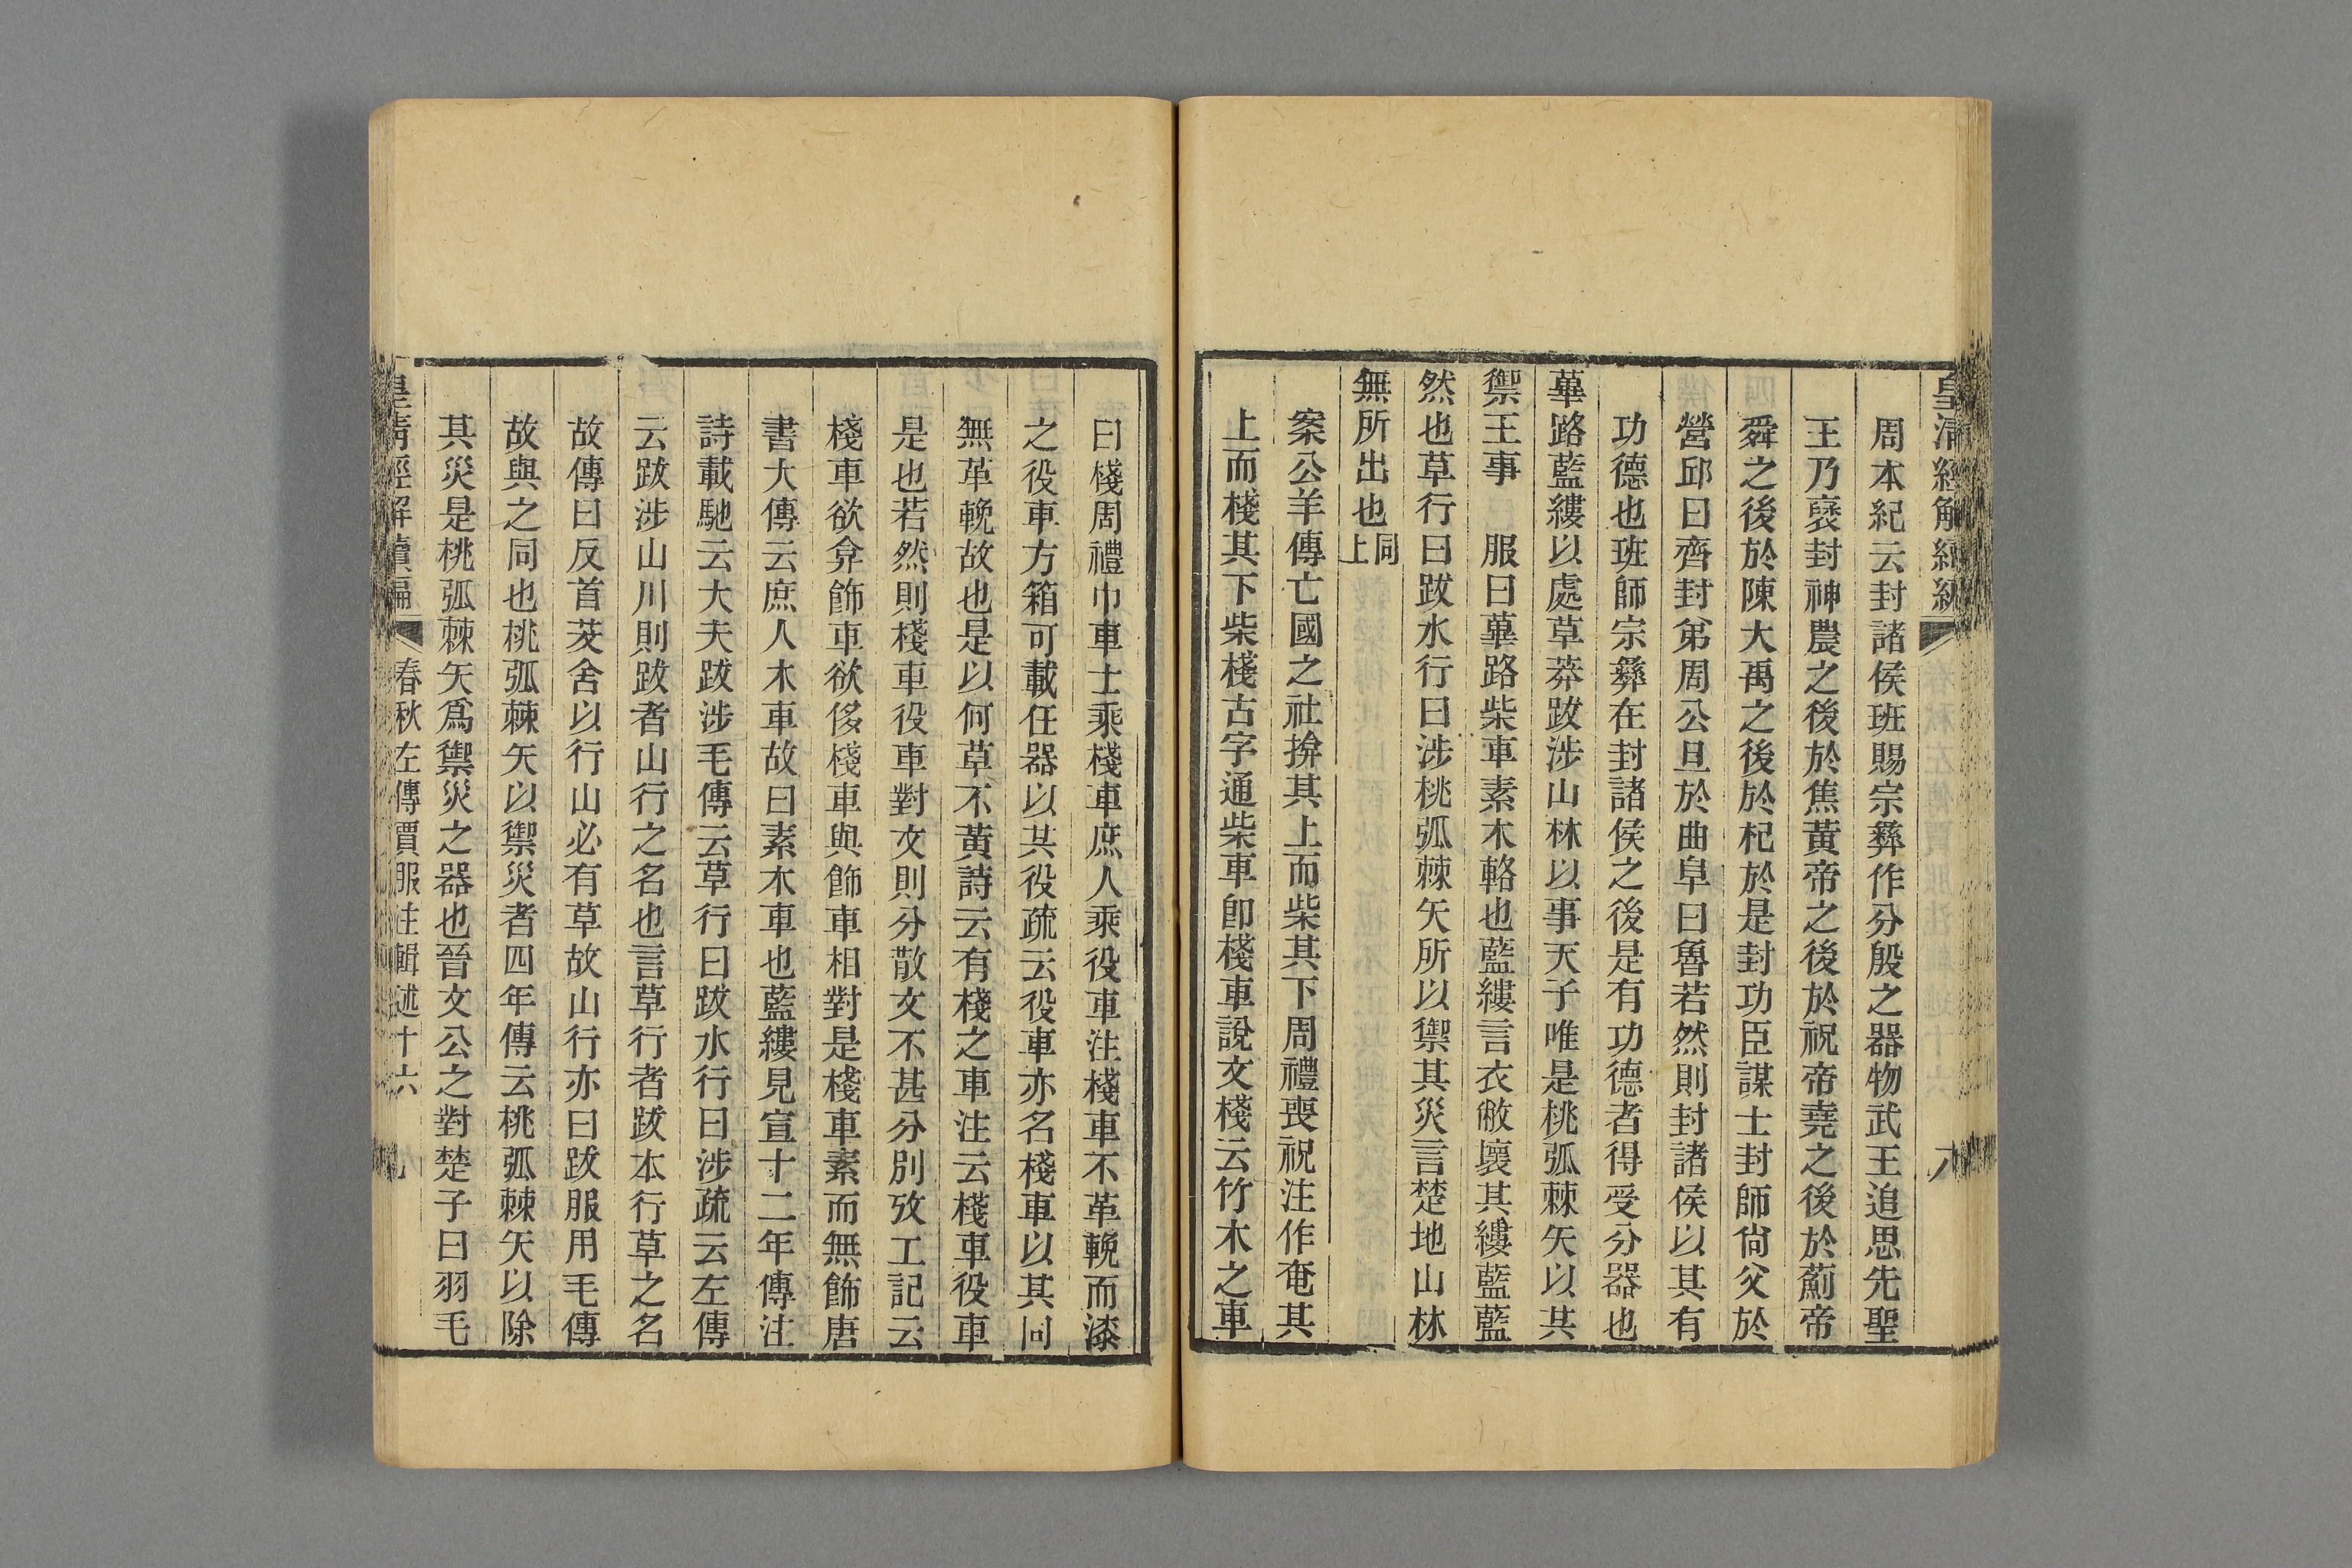 皇清經解續編
八
周本紀云封諸侯班賜宗彝作分殷之器物武王追思先聖
王乃襃封神農之後於焦黃帝之後於祝帝堯之後於薊帝
舜之後於陳大禹之後於杞於是封功臣謀士封師尙父於
營邱曰齊封弟周公旦於曲阜曰魯若然則封諸侯以其有
功德也班師宗彝在封諸侯之後是有功德者得受分器也
蓽路藍縷以處草莽跋涉山林以事天子唯是桃弧棘矢以共
禦王事　服曰蓽路柴車素木輅也藍縷言衣敝壞其縷藍藍
然也草行曰跋水行曰涉桃弧棘矢所以禦其災言楚地山林
無所出也同上
案公羊傳亡國之社揜其上而柴其下周禮喪祝注作奄其
上而棧其下柴棧古字通柴車卽棧車說文棧云竹木之車
曰棧周禮巾車士乘棧車庶人乘役車注棧車不革輓而漆
之役車方箱可載任器以共役疏云役車亦名棧車以其同
無革輓故也是以何草不黃詩云有棧之車注云棧車役車
是也若然則棧車役車對文則分散文不甚分別攷工記云
棧車欲弇飾車欲侈棧車與飾車相對是棧車素而無飾唐
書大傳云庶人木車故曰素木車也藍縷見宣十二年傳注
詩載馳云大夫跋涉毛傳云草行曰跋水行曰涉疏云左傳
云跋涉山川則跋者山行之名也言草行者跋本行草之名
故傳曰反首茇舍以行山必有草故山行亦曰跋服用毛傳
故與之同也桃弧棘矢以禦災者四年傳云桃弧棘矢以除
其災是桃弧棘矢爲禦災之器也晉文公之對楚子曰羽毛
皇清經解續編
春秋左傳賈服注輯述十六
九